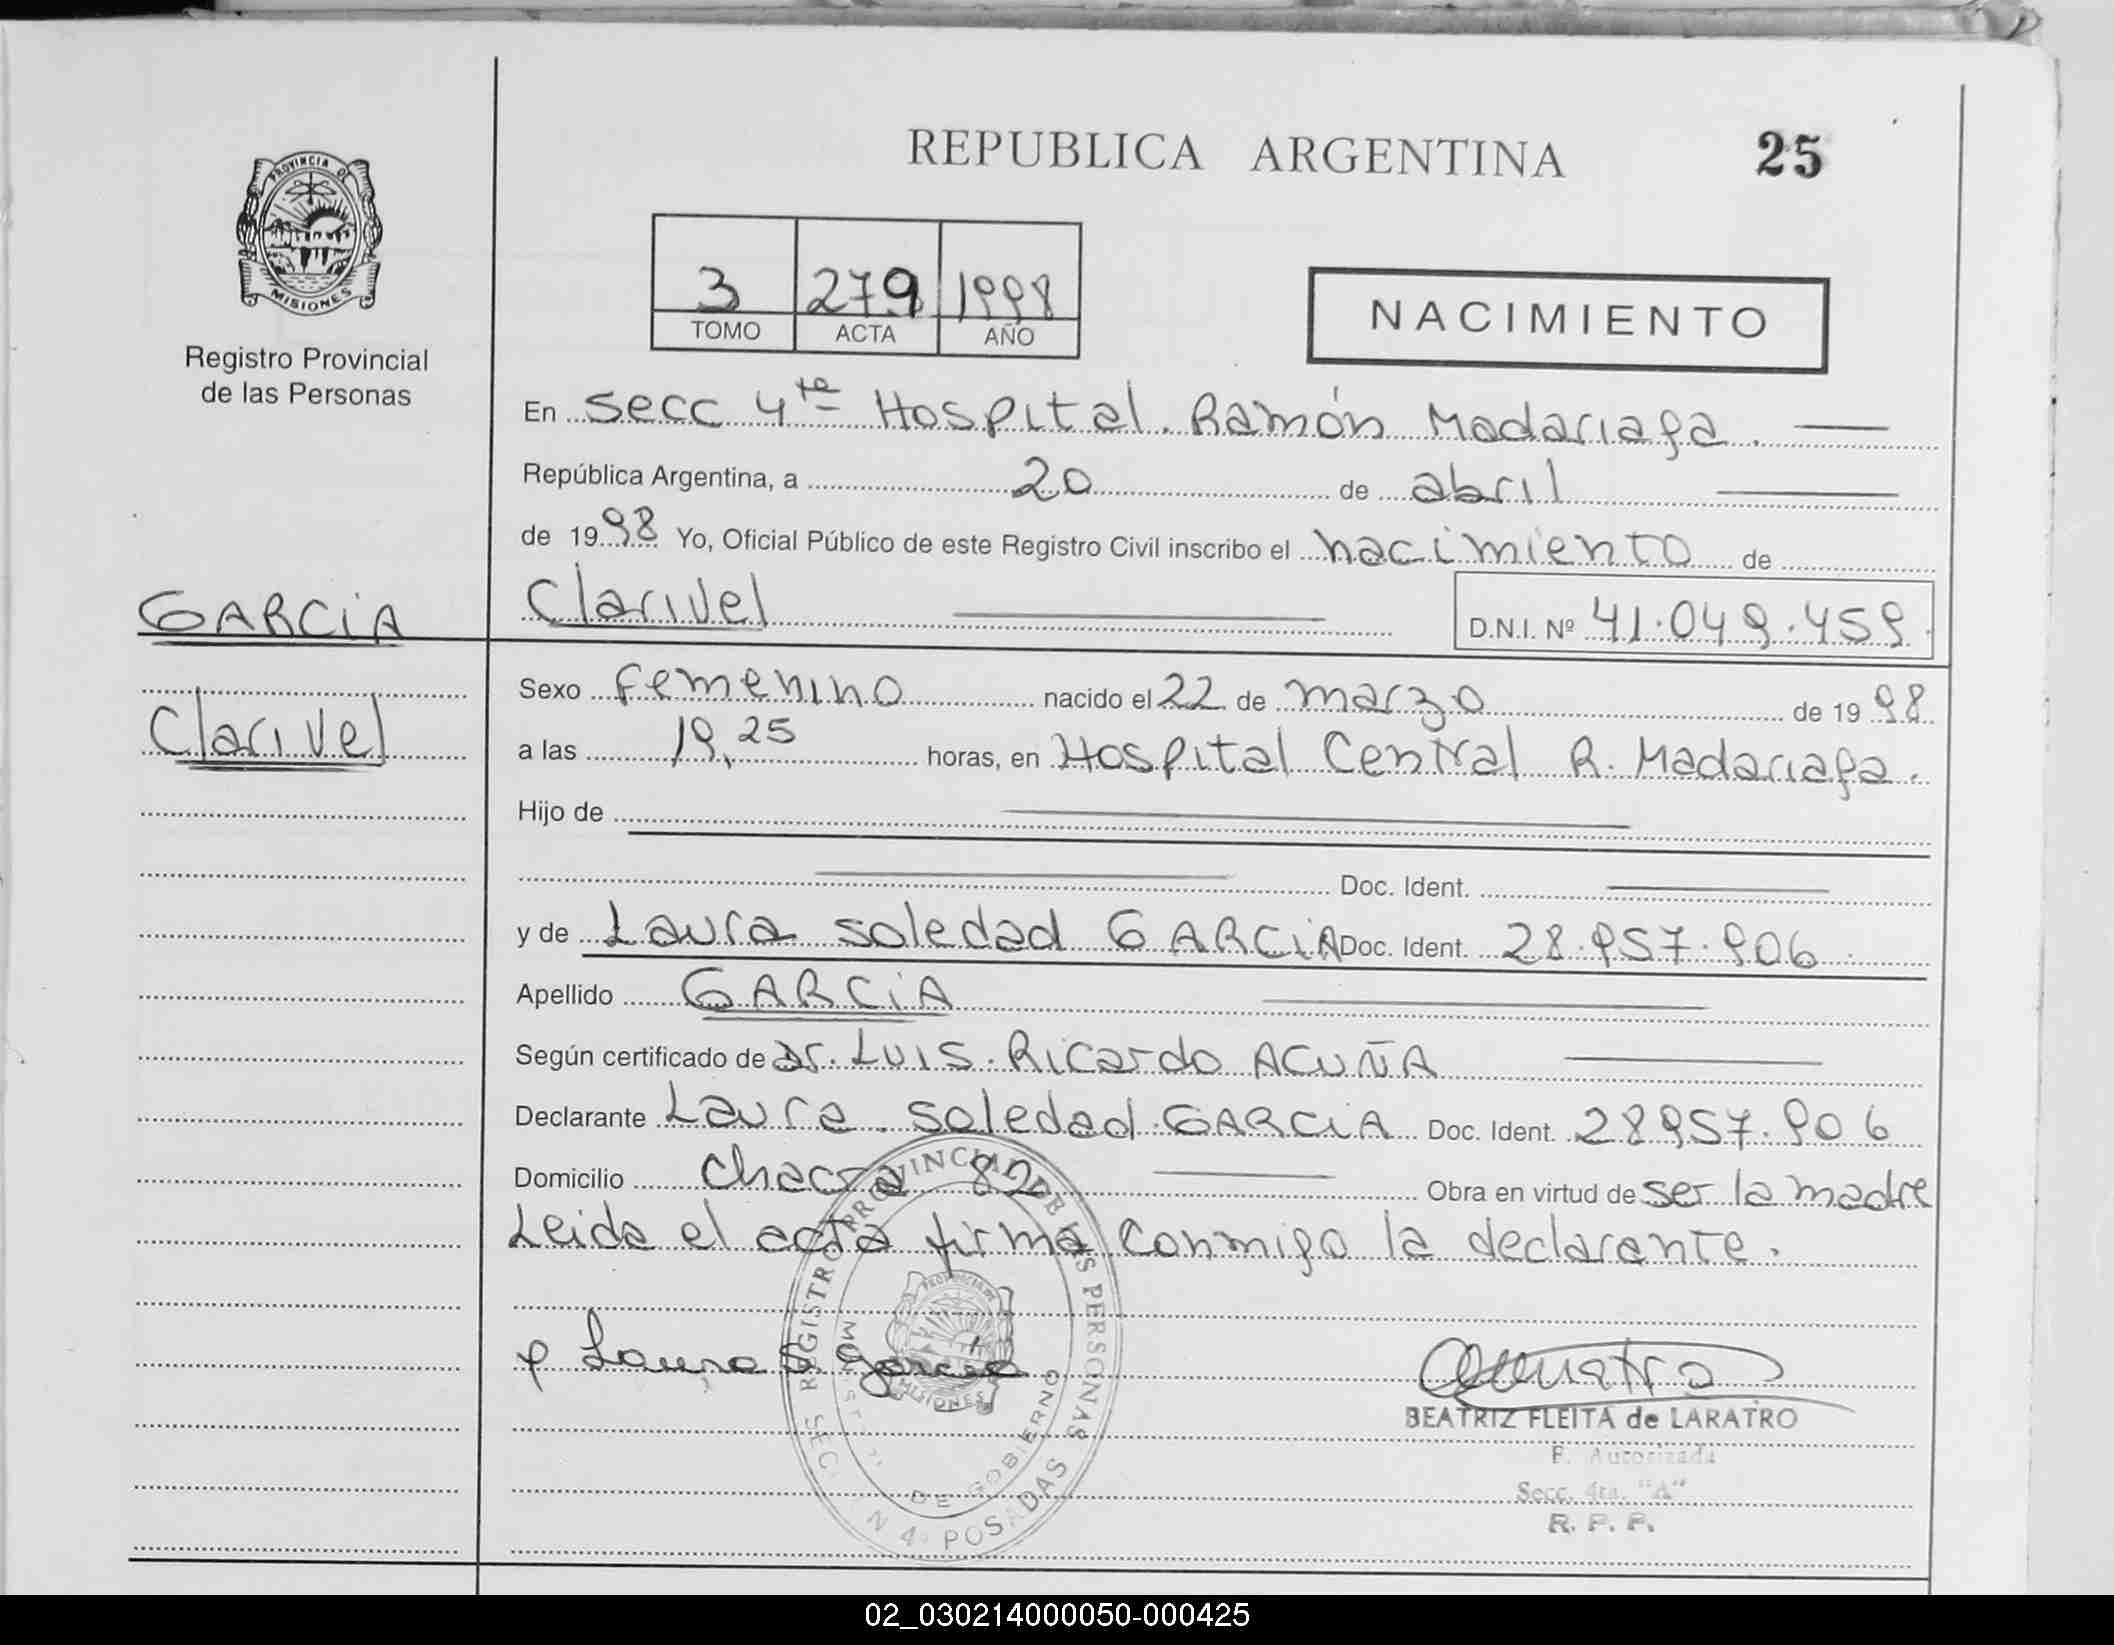 REPUBLICA ARGENTINA 25
PROVINCIA DE
MISIONES
Registro Provincial
de las Personas
3 279 1998
TOMO ACTA AÑO
NACIMIENTO
En Secc 4ta Hospital Ramón Madariaga.
República Argentina, a 20 de abril
de 1998 Yo, Oficial Público de este Registro Civil inscribo el nacimiento de
GARCiA
Clarivel
Clarivel D.N.I. Nº 41.049.459.
Sexo Femenino nacido el 22 de marzo de 1998
a las 19,25 horas, en Hospital Central R. Madariaga.
Hijo de
Doc. Ident.
y de Laura Soledad GARCiA Doc. Ident. 28.957.906
Apellido GARCiA
Según certificado de Dr. LUIS Ricardo ACUÑA
Declarante Laura Soledad GARCiA Doc. Ident. 28957.906
Domicilio Chacra 82 Obra en virtud de ser la madre
Leida el acta firma conmigo la declarante.
Laura S. Garcia
REGISTRO PROVINCIAL DE LAS PERSONAS
MISIONES
DE GOBIERNO
N 4º POSADAS
BEATRIZ FLEITA de LARATRO
F. Autorizada
Secc. 4ta. "A"
R. P. P.
02_030214000050-000425